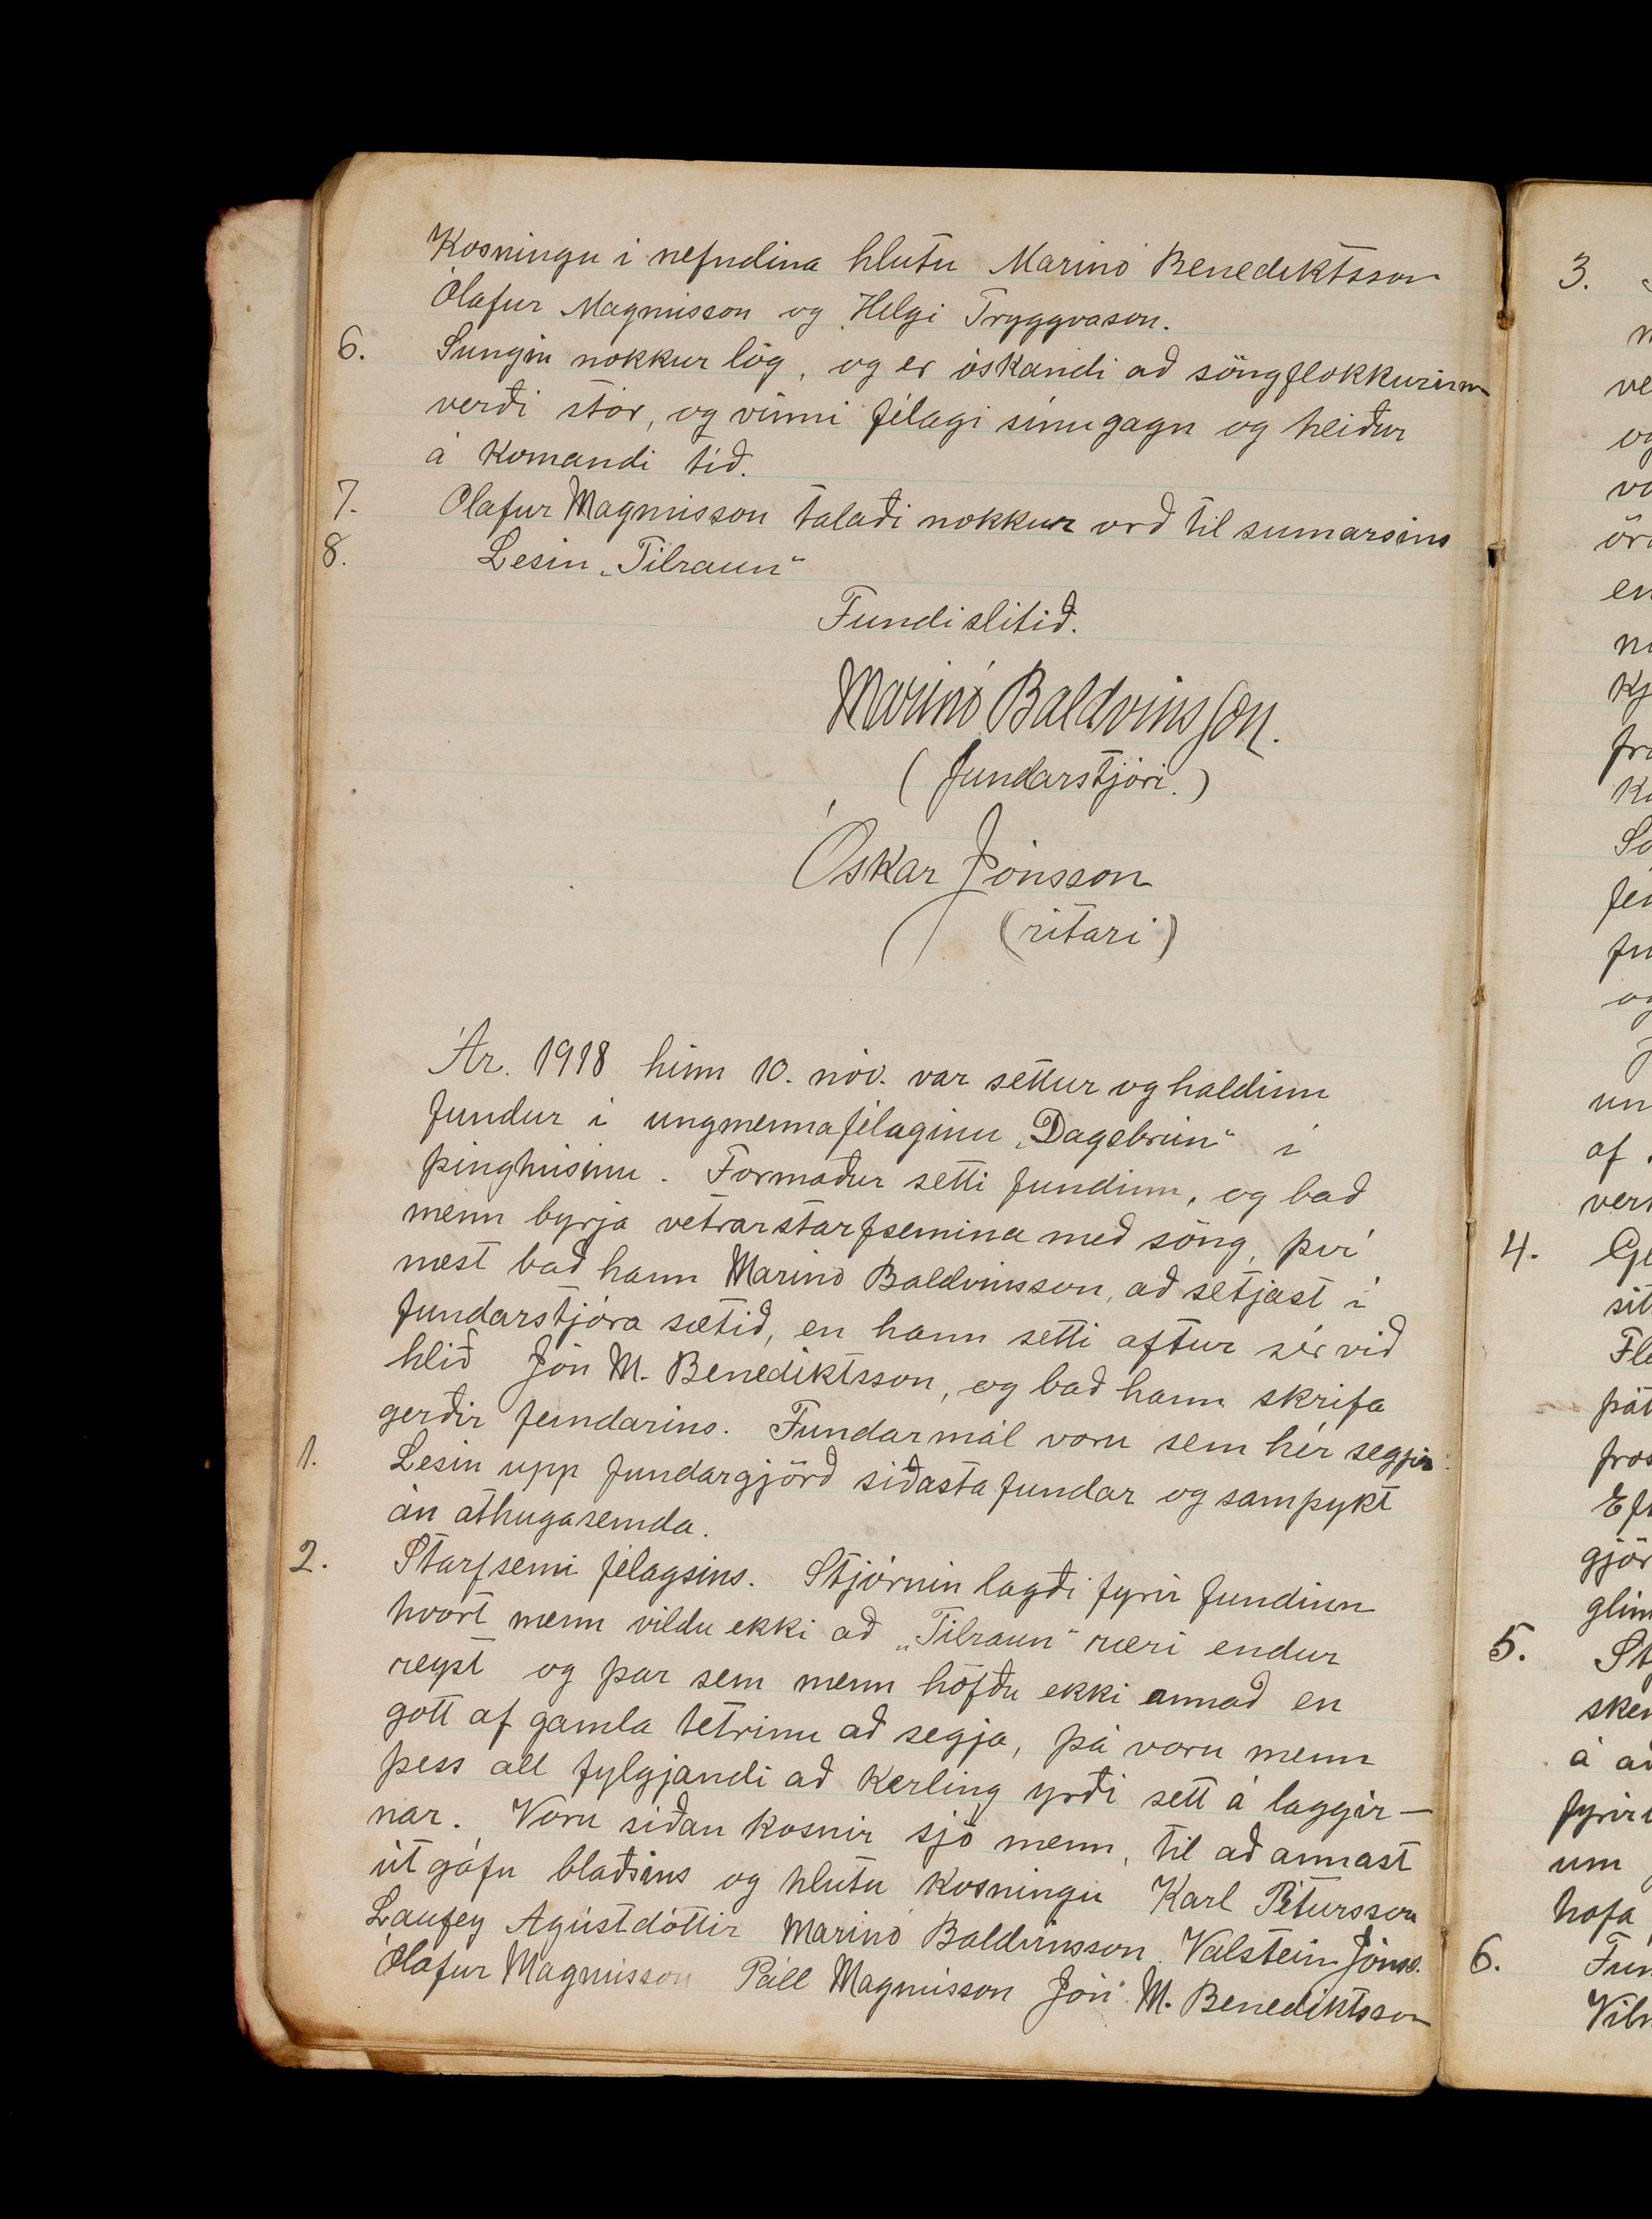 Kosningu i nefndina hlutu Marinó Benediktsson
Ólafur Magnússon og Helgi Tryggvason.
6. Sungin nokkur lög, og er óskandi að söngflokkurinn
verði stór, og vinni félagi sínu gagn og heiður
á komandi tíð.
7. Ólafur Magnússon talaði nokkur orð til sumarsins
8. Lesin „Tilraun“
Fundi slitið.
Marinó Baldvinsson.
(fundarstjóri.)
Óskar Jónsson
(ritari)
Ár. 1918 hinn 10. nóv. var settur og haldinn
fundur í ungmennafélaginu „Dagsbrún“ í
þinghúsinu. Formaður setti fundinn, og bað
menn byrja vetrarstarfsemina með söng, því
næst bað hann Marinó Baldvinsson, að setjast í
fundarstjóra sætið, en hann setti aftur sér við
hlið Jón M. Benediktsson, og bað hann skrifa
gerðir fundarins. Fundarmál voru sem hér segir:
1. Lesin upp fundargjörð síðasta fundar og samþykt
án athugasemda.
2. Starfsemi félagsins. Stjórnin lagði fyrir fundinn
hvort menn vildu ekki að „Tilraun“ væri endur
reyst og þar sem menn höfðu ekki annað en
gott af gamla tetrinu að segja, þá voru menn
þess all fylgjandi að kerling yrði sett á laggir-
nar. Voru síðan kosnir sjö menn, til að annast
út gáfu blaðsins og hlutu kosningu Karl Pétursson
Laufey Agústdóttir Marinó Baldvinsson. Valstein Jónss.
Ólafur Magnússon Páll Magnússon Jón M. Benediktsson
3.
4.
5.
6.